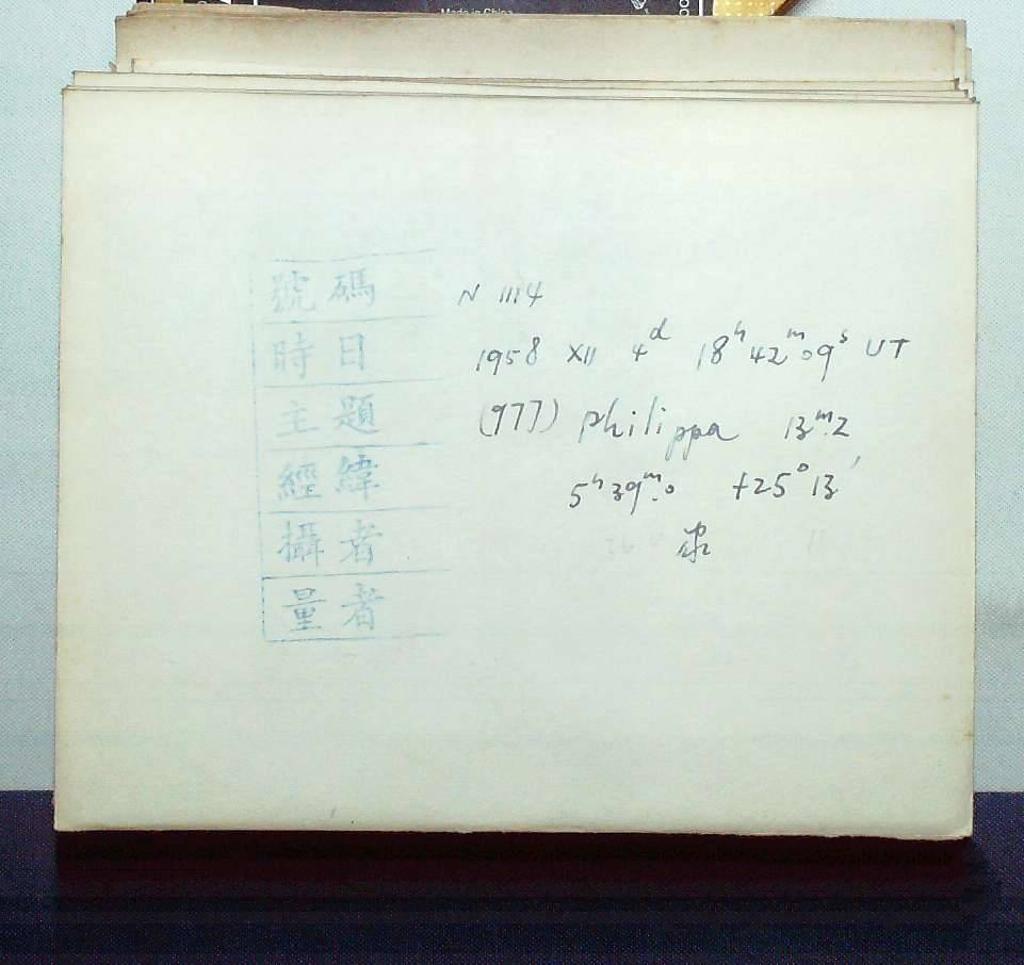 Made in China
號碼 N 1114
時日 1958 XII 4ᵈ 18ʰ42ᵐ09ˢ UT
主題 (977) Philippa 13ᵐ.2
經緯 5ʰ39ᵐ.0 +25°13′
攝者
量者